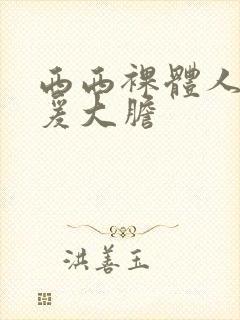 西西裸體人
爰大膽
洪善玉